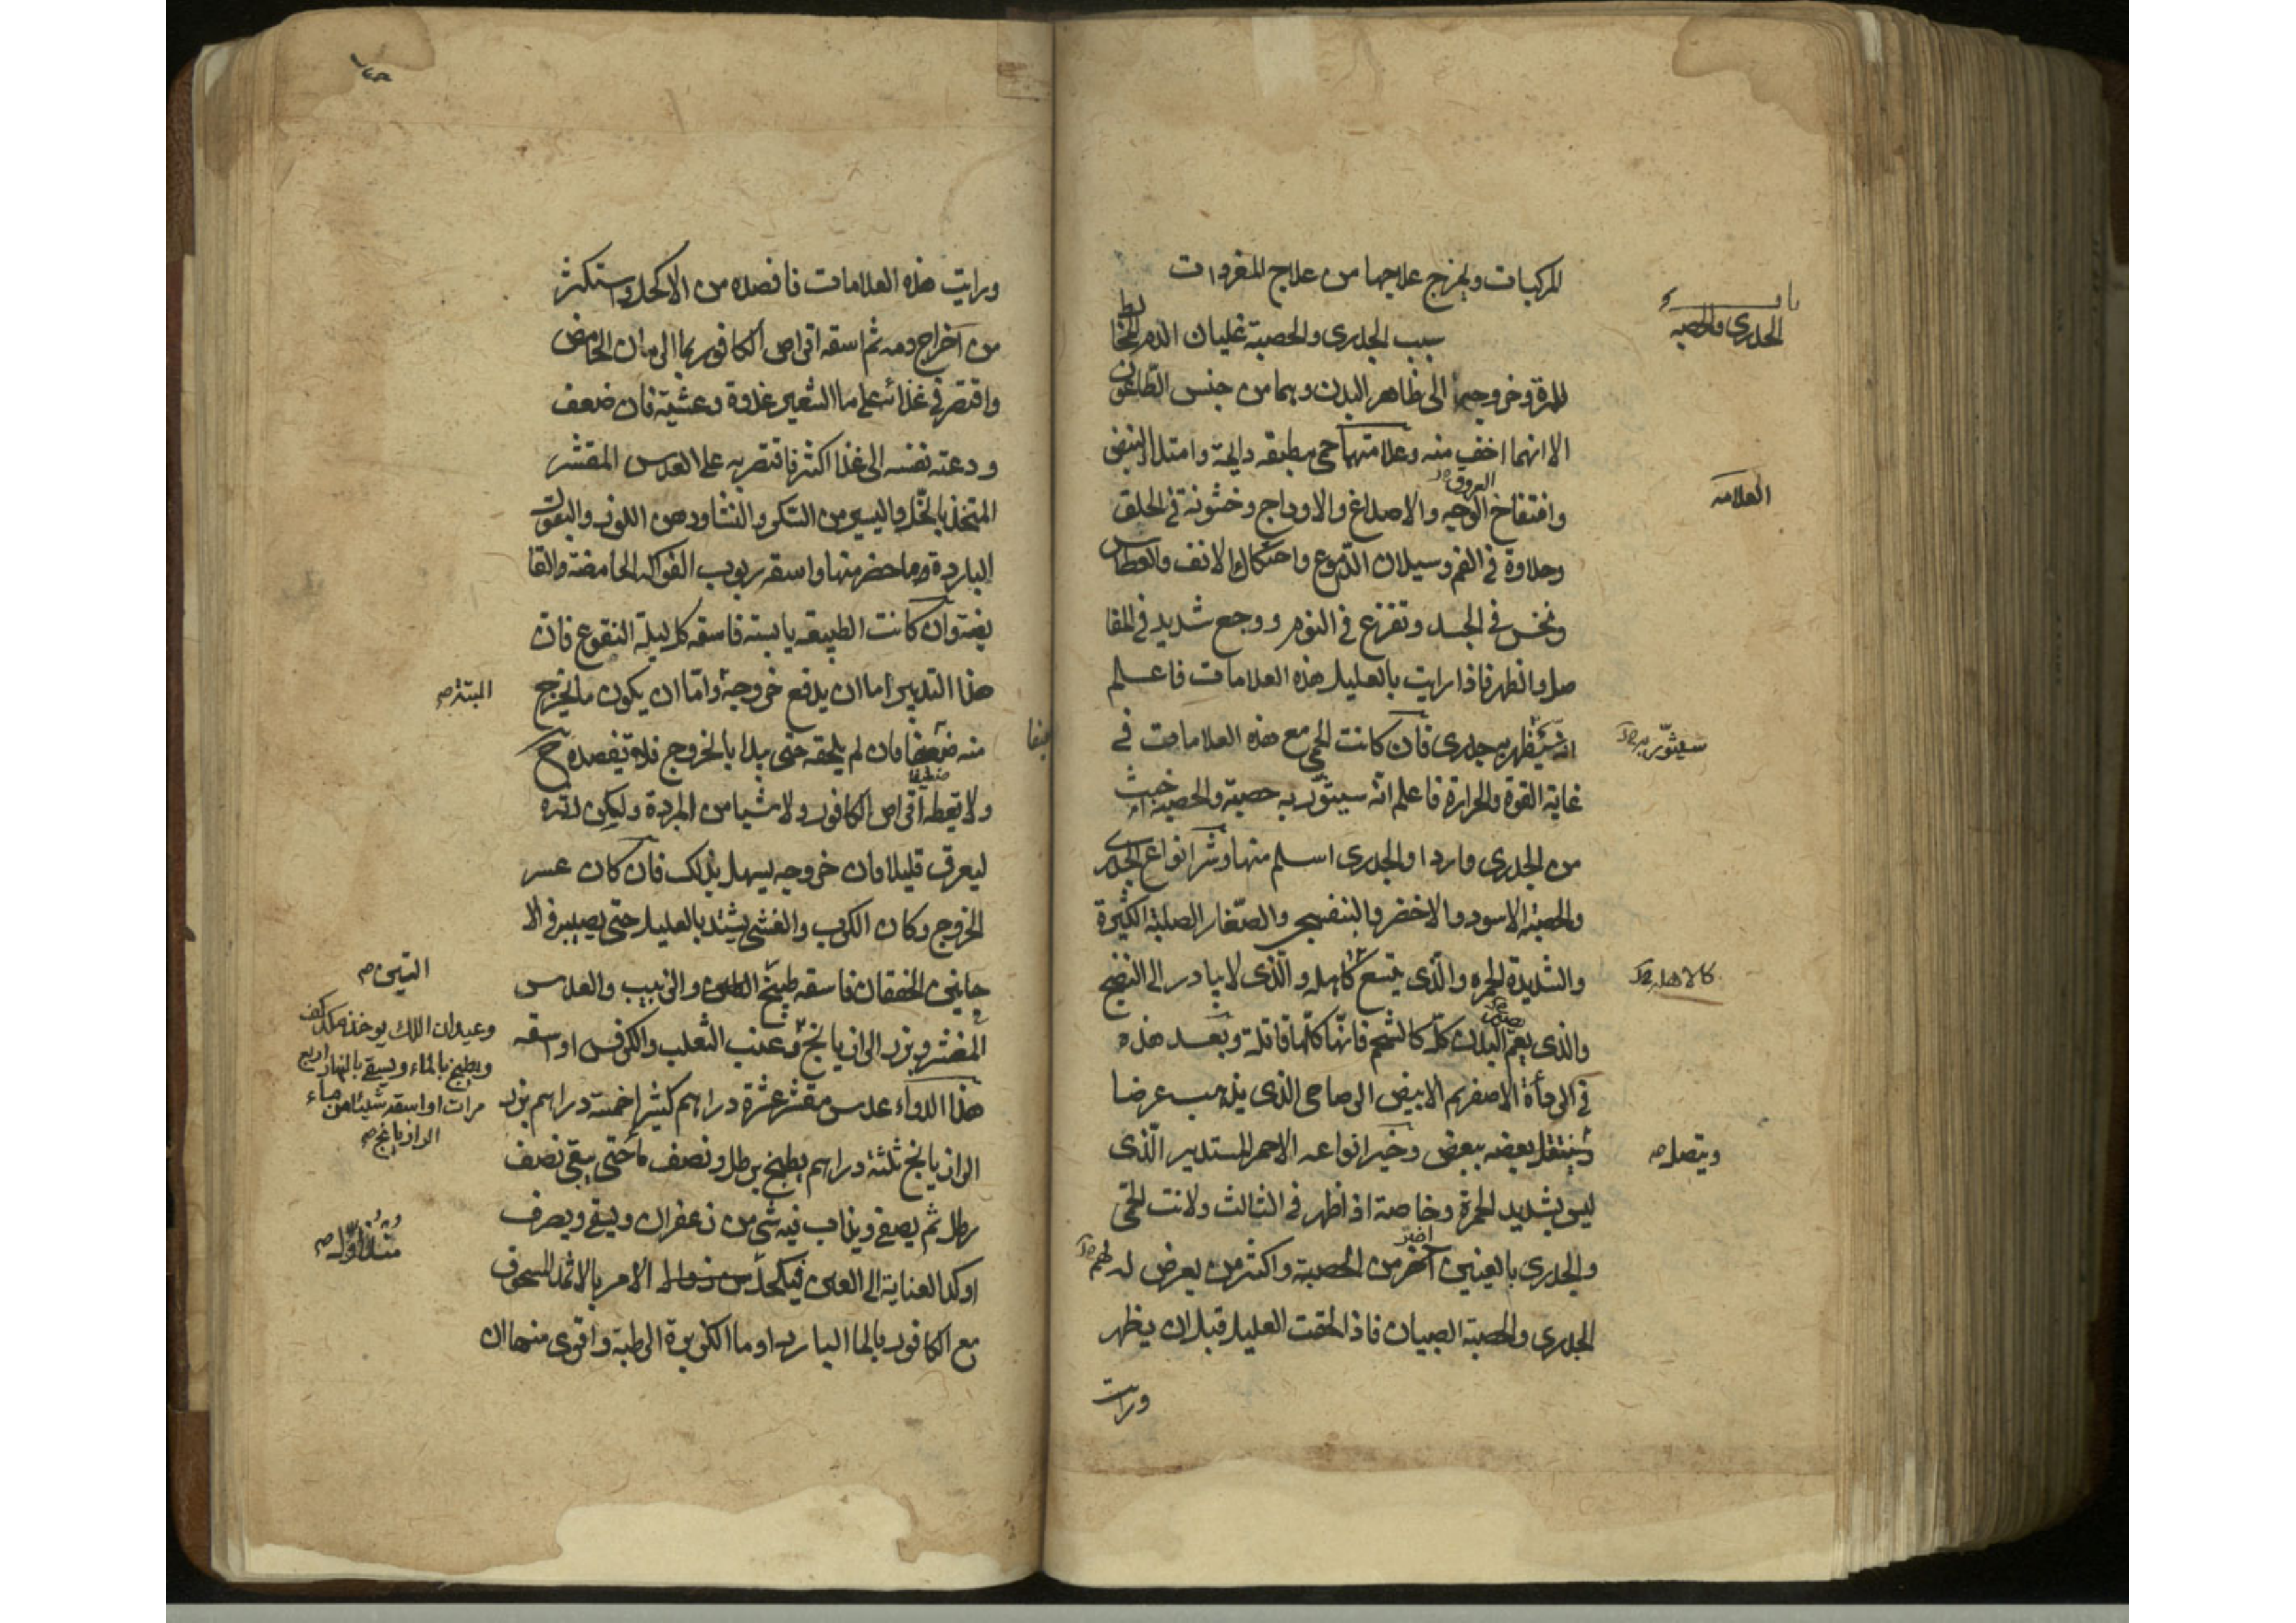 المركبات ويخرج علاجها من علاج المفردات
باب في
الجدري والحصبة
سبب الجدري والحصبة غليان الدم المخالط
للمرة وخروجهما الى ظاهر البدن وهما من جنس الطاعون
الا انهما اخف منه وعلامتهما حمى مطبقه دايمة وامتلا النبض
العلامه
العروق
وانتفاخ الوجه والاصداغ والاوداج وخشونة في الحلق
وحلاوة في الفم وسيلان الدموع واحتكاك الانف والعطاس
ونخس في الجسد وتفزع في النوم ووجع شديد في المفا
صل والظهر فاذا رايت بالعليل هذه العلامات فاعلم
انه سيظهر به جدري فان كانت الحمى مع هذه العلامات في
سيثور به
غاية القوة والحرارة فاعلم انه سيثور به حصبة والحصبة اخبث
من الجدري واردا والجدري اسلم منها وشر انواع الجدري
والحصبة الاسود والاخضر والبنفسجي والصغار الصلبة الكثيرة
والشديدة الحمره والذي يتسع كاهله والذي لا يبادر الى النضج
والذي يعم البدن كله كالشحم فانها كلها قاتلة وبعد هذه
في الرداءة الاصفر ثم الابيض الرصاصي الذي يذهب عرضا
وينتقل بعضه ببعض وخير انواعه الاحمر المستدير الذي
ويتصل
ليس بشديد الحمرة وخاصة اذا ظهر في الثالث ولانت الحمى
اضر
والجدري بالعينين اضر من الحصبة واكثر من يعرض له
لهم
الجدري والحصبة الصبيان فاذا لحقت العليل قبل ان يظهر
ورايت
ورايت هذه العلامات فافصده من الاكحل واستكثر
من اخراج دمه ثم اسقه اقراص الكافور بما الرمان الحامض
واقتصر في غذائه على ما الشعير غدوة وعشية فان ضعف
ودعته نفسه الى غذا اكثر فاقتصر به على العدس المقشر
المتخذ بالخل واليسير من السكر والنشا ودهن اللوز والبقول
الباردة وما حضر منها واسقه ربوب الفواكه الحامضة والقا
بضة وان كانت الطبيعه يابسة فاسقه كل ليلة النقوع فان
هذا التدبير اما ان يدفع خروجه واما ان يكون ما يخرج
منه ضعيفا فان لم يلحقه حتى بدا بالخروج فلا تفصده ح
ضعيفا
ولا تعطه اقراص الكافور ولا شيا من المبردة ولكن دثره
ليعرق قليلا فان خروجه يسهل بذلك فان كان عسر
الخروج وكان الكرب والغشي يشتد بالعليل حتى يصير في الا
حايين الخفقان فاسقه طبيخ التين والزبيب والعدس
التين
المقشر وبزر الرازيانج وعنب الثعلب والكرفس او اسقه
وعيدان اللك يوخذ من كل كف
ويطبخ بالماء ويسقى بالنهار اربع
مرات او اسقه شيئا من ماء
الرازيانج
هذا الدواء عدس مقشر عشرة دراهم كثيرا خمسة دراهم بزر
الرازيانج ثلثة دراهم يطبخ برطل ونصف ما حتى يبقى نصف
رطل ثم يصفى ويذاب فيه شي من زعفران ويسقى ويصرف
اوكد العناية الى العين فيكحل الامر بالاثمد المسحوق
مع الكافور بالما البارد او ما الكزبرة الرطبة واقوى منها ان